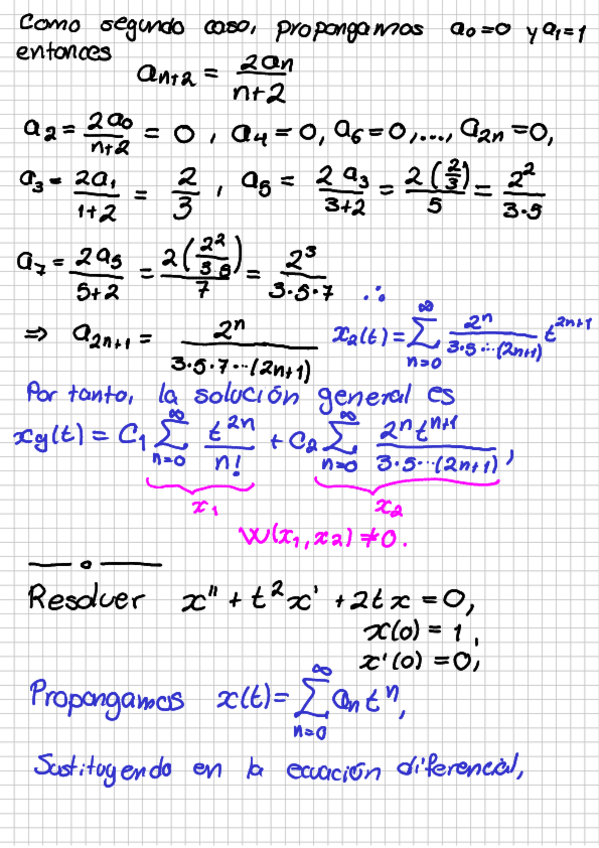 Como segundo caso, propongamos a₀=0 y a₁=1
entonces
aₙ₊₂ = 2aₙ/(n+2)
a₂ = 2a₀/(n+2) = 0 , a₄=0, a₆=0,..., a₂ₙ=0,
a₃ = 2a₁/(1+2) = 2/3 , a₅ = 2a₃/(3+2) = 2(2/3)/5 = 2²/(3·5)
a₇ = 2a₅/(5+2) = 2(2²/(3·5))/7 = 2³/(3·5·7) ∴
⇒ a₂ₙ₊₁ = 2ⁿ/(3·5·7···(2n+1)) x₂(t) = ∑_{n=0}^{∞} 2ⁿ/(3·5···(2n+1)) t²ⁿ⁺¹
Por tanto, la solución general es
x_g(t) = C₁ ∑_{n=0}^{∞} t²ⁿ/n! + C₂ ∑_{n=0}^{∞} 2ⁿtⁿ⁺¹/(3·5···(2n+1)) ,
x₁ x₂
W(x₁,x₂) ≠ 0.
Resolver x'' + t²x' + 2tx = 0,
x(0) = 1,
x'(0) = 0,
Propongamos x(t) = ∑_{n=0}^{∞} aₙtⁿ,
Sustituyendo en la ecuación diferencial,